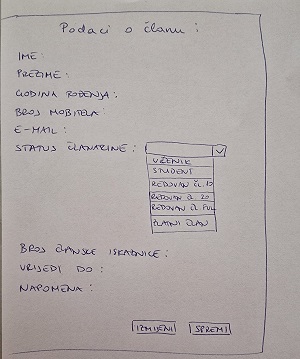 Podaci o članu :
IME :
PREZIME :
GODINA ROĐENJA :
BROJ MOBITELA :
E-MAIL :
STATUS ČLANARINE :
UČENIK
STUDENT
REDOVAN ČL. 10
REDOVAN ČL. 20
REDOVAN ČL. FULL
ZLATNI ČLAN
BROJ ČLANSKE ISKAZNICE :
VRIJEDI DO :
NAPOMENA :
IZMIJENI SPREMI